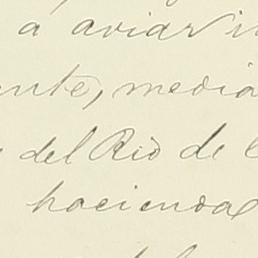 a aviar
ente, media
del Rio de
hacienda